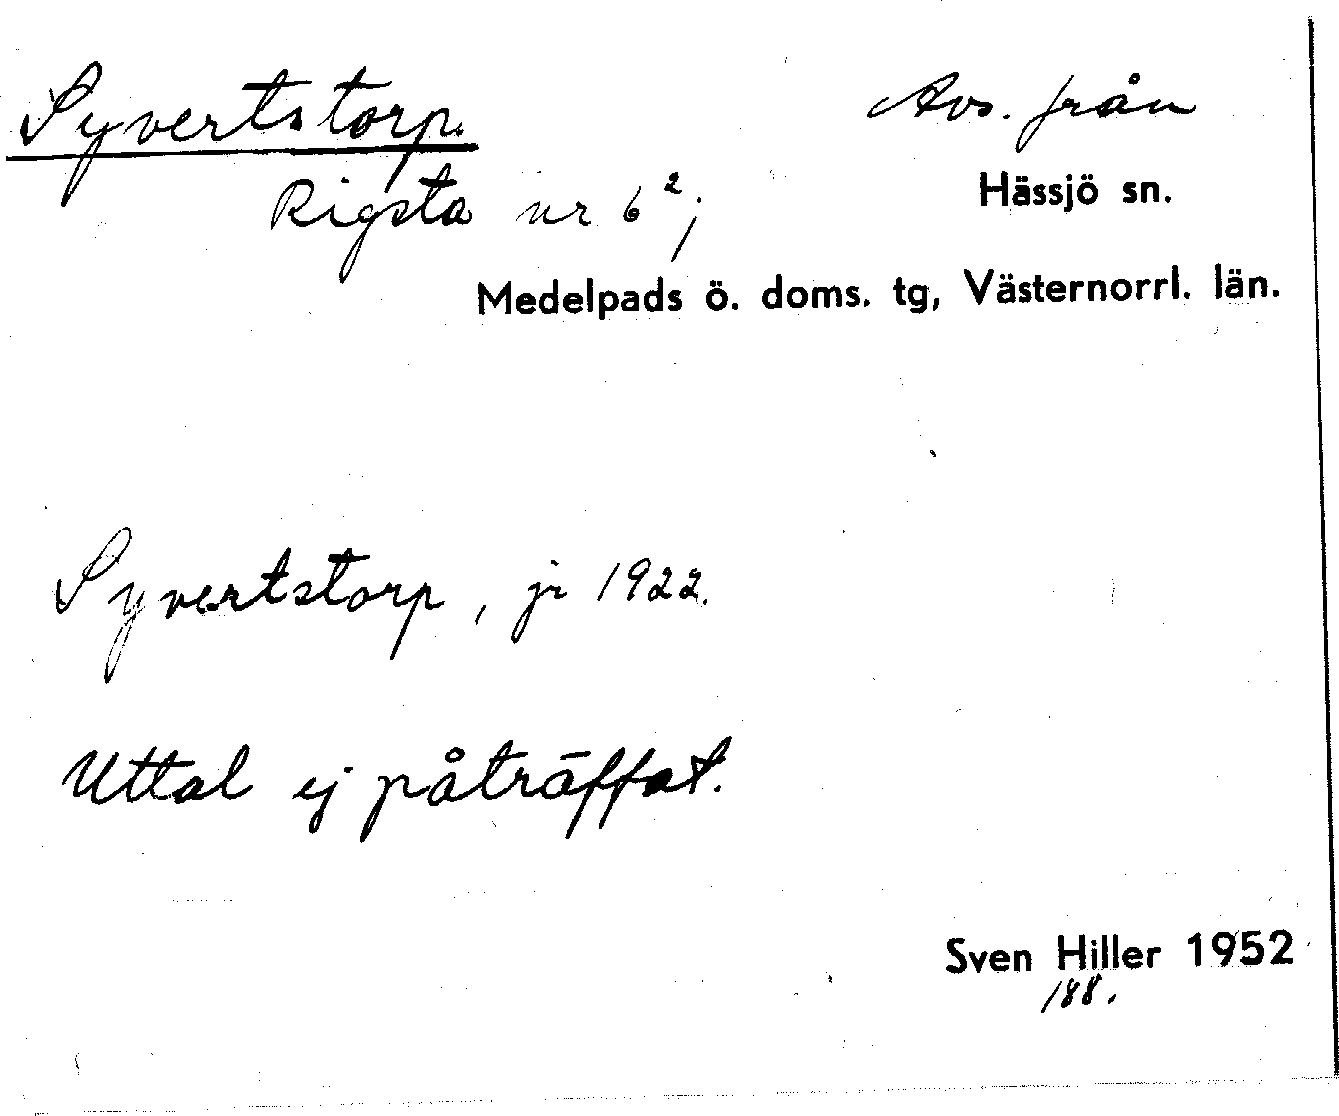 Syvertstorp. Avs. från
Rigsta nr 6²; Hässjö sn.
Medelpads ö. doms. tg, Västernorrl. län.
Syvertstorp, jr 1922.
Uttal ej påträffat.
Sven Hiller 1952
188.